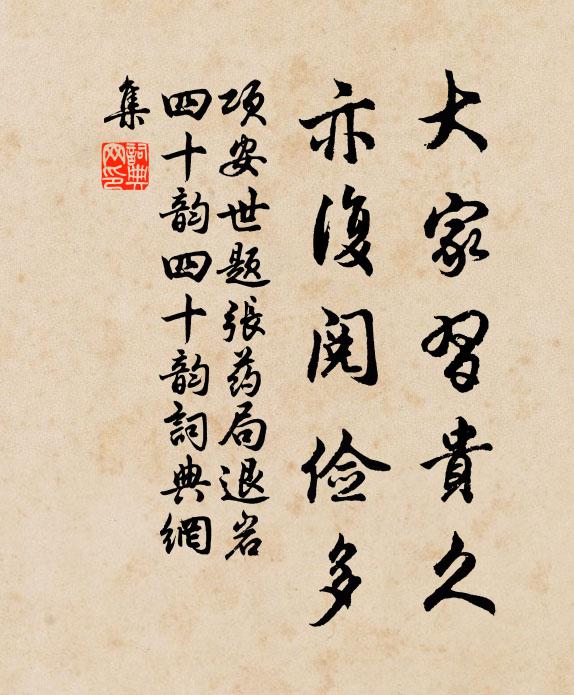 大家習貴久
亦復閱俭多
项安世题張药局退岩
四十韵四十韵詞典網
集
詞典
网印